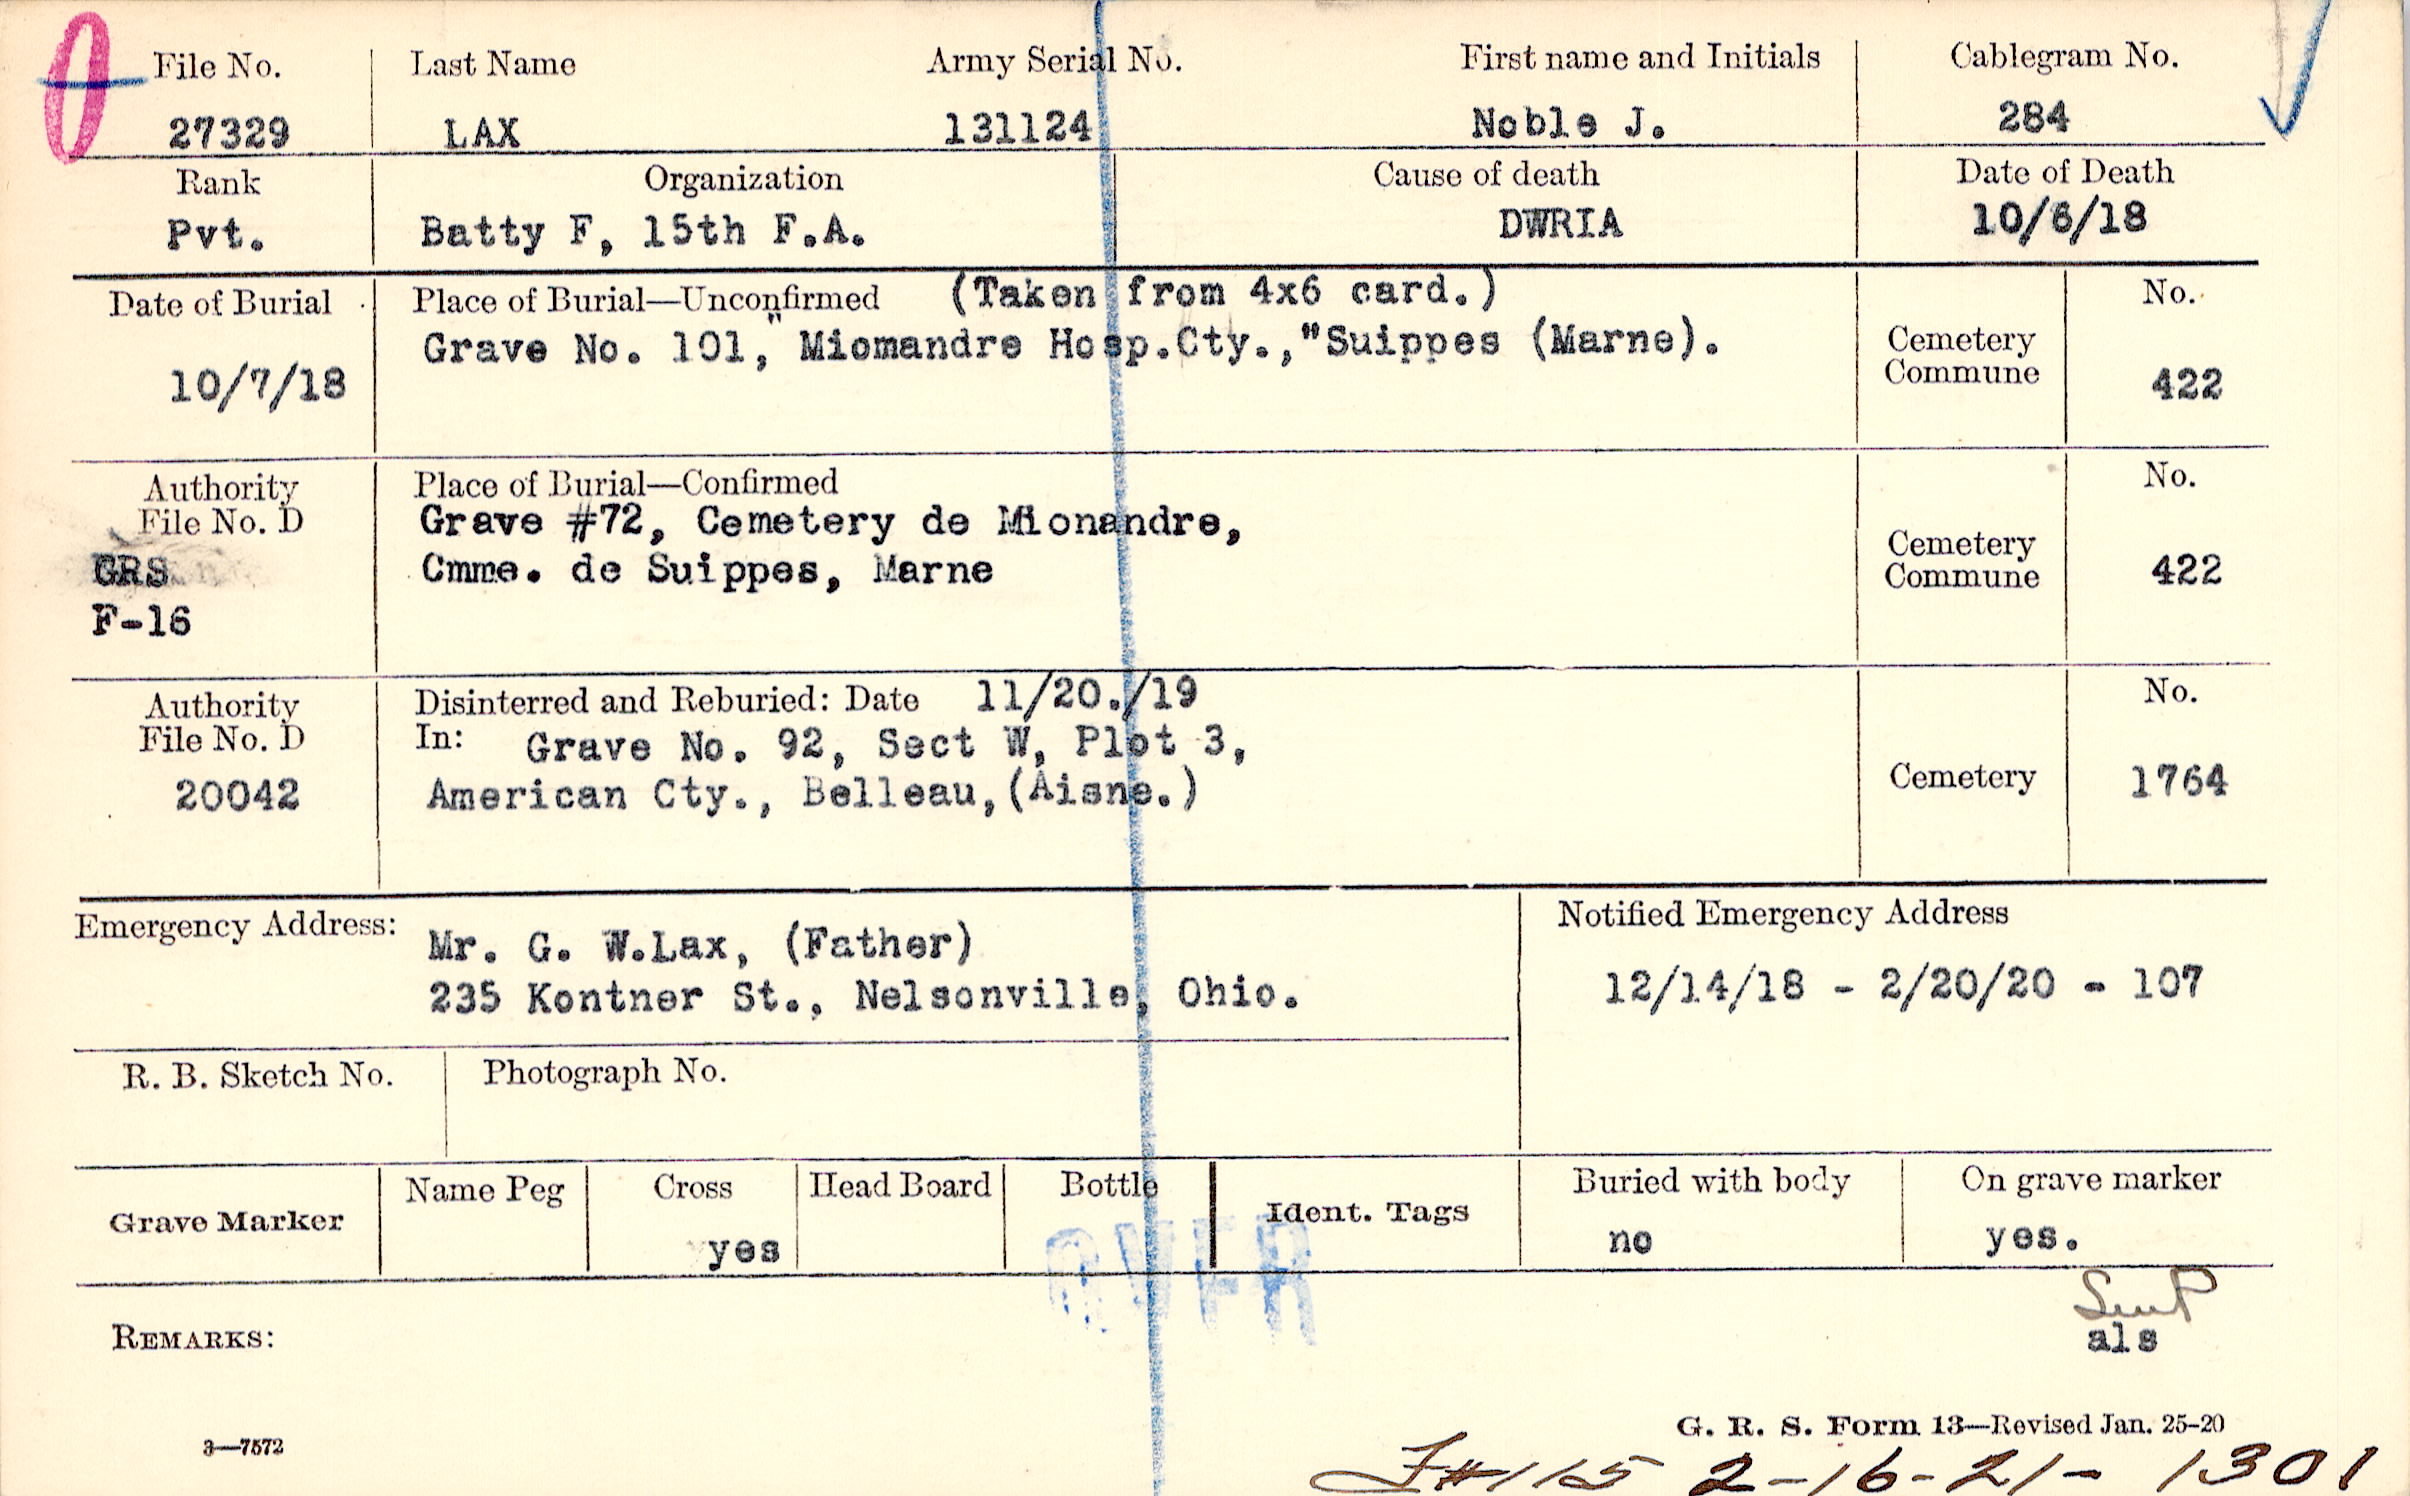 File No. Last Name Army Serial No. First name and Initials Cablegram No.
27329 LAX 131124 Noble J. 284
Rank Organization Cause of death Date of Death
Pvt. Batty F, 15th F.A. DWRIA 10/6/18
Date of Burial Place of Burial—Unconfirmed (Taken from 4x6 card.) No.
Grave No. 101," Miomandre Hosp.Cty.,"Suippes (Marne).
10/7/18 Cemetery Commune 422
Authority Place of Burial—Confirmed No.
File No. D Grave #72, Cemetery de Mionandre,
GRS Cmme. de Suippes, Marne Cemetery Commune 422
F-16
Authority Disinterred and Reburied: Date 11/20./19 No.
File No. D In: Grave No. 92, Sect W, Plot 3,
20042 American Cty., Belleau,(Aisne.) Cemetery 1764
Emergency Address: Mr. G. W.Lax, (Father) Notified Emergency Address
235 Kontner St., Nelsonville, Ohio. 12/14/18 - 2/20/20 - 107
R. B. Sketch No. Photograph No.
Grave Marker Name Peg Cross Head Board Bottle Ident. Tags Buried with body On grave marker
yes no yes.
OVER
REMARKS: als
G. R. S. Form 13—Revised Jan. 25-20
3—7572
F#115 2-16-21- 1301